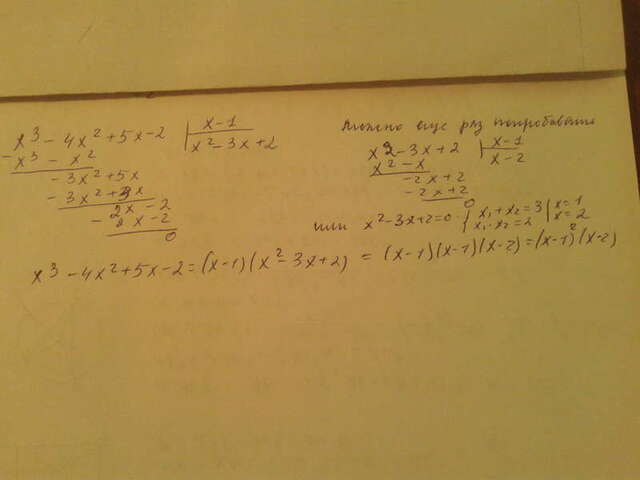 x³ - 4x² + 5x - 2 | x - 1
- x³ - x² | x² - 3x + 2
- 3x² + 5x
- - 3x² + 3x
2x - 2
- 2x - 2
0
можно еще раз попробовать
x² - 3x + 2 | x - 1
x² - x | x - 2
- 2x + 2
- 2x + 2
0
или x² - 3x + 2 = 0 { x₁ + x₂ = 3 | x = 1
x₁ · x₂ = 2 | x = 2
x³ - 4x² + 5x - 2 = (x - 1)(x² - 3x + 2) = (x - 1)(x - 1)(x - 2) = (x - 1)²(x - 2)